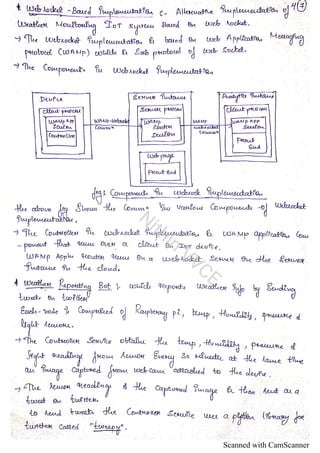 * Web Socket - Based Implementation (or Alternative Implementation) of
Weather Monitoring IoT System Based on Web Socket.
→ The Websocket Implementation is based on Web Application Messaging
protocol (WAMP) which is Sub protocol of Web Socket.
→ The Components in Websocket Implementation
Device
Server Instance
Analytics Instance
Client process
Server process
Client process
WAMP App
Session
WAMP-Websocket
Connxn
WAMP
Router
Session
WAMP
websocket
Connxn
WAMP App
Session
Controller
Web page
Front
End
Front End
fig1. Components in Websocket Implementation
The above fig Shows the Comm n various Components of Websocket
Implementation.
→ The Controller in Websocket Implementation is WAMP application Com
-ponent that runs over a client on IoT device.
WAMP Appln Router runs on a websocket Server on the Server
Instance in the cloud.
* Weather Reporting Bot : which reports Weather Info by Sending
tweets on twitter
Each-node is Comprised of Raspberry pi, temp, Humidity, pressure &
light sensors.
→ The Controller Service obtains the temp, Humidity, pressure &
light readings from Sensors Every 30 minutes at the same time
an Image captured from web cam attached to the device.
→ The sensor readings & the captured Image is then sent as a
tweet on twitter.
to send tweets the Controller Service uses a python library for
twitter called "tweepy".
Scanned with CamScanner